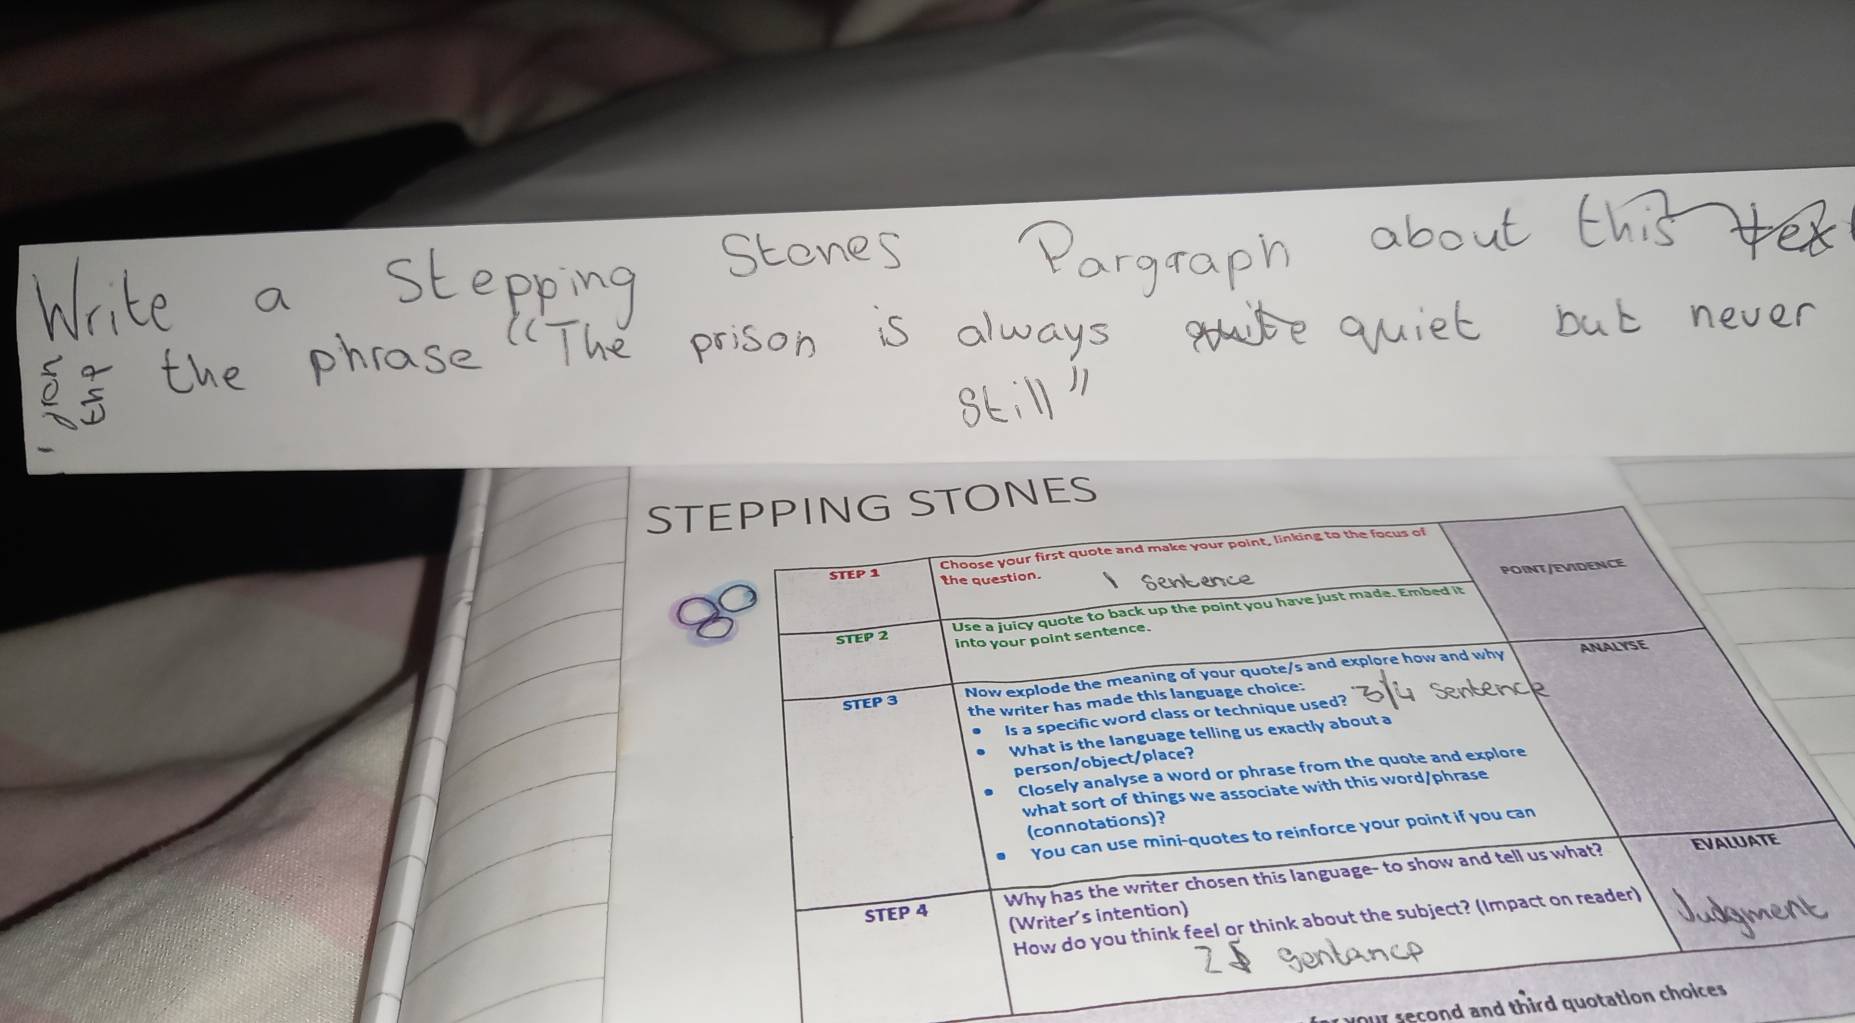 Write a Stepping Stones Pargraph about this tex
the phrase "The prison is always quite quiet but never
still"
STEPPING STONES
STEP 1
Choose your first quote and make your point, linking to the focus of
the question.
1 sentence
POINT/EVIDENCE
STEP 2
Use a juicy quote to back up the point you have just made. Embed it
into your point sentence.
STEP 3
Now explode the meaning of your quote/s and explore how and why
the writer has made this language choice:
3/4 sentence
• Is a specific word class or technique used?
• What is the language telling us exactly about a
person/object/place?
• Closely analyse a word or phrase from the quote and explore
what sort of things we associate with this word/phrase
(connotations)?
• You can use mini-quotes to reinforce your point if you can
ANALYSE
STEP 4
Why has the writer chosen this language- to show and tell us what?
(Writer's intention)
How do you think feel or think about the subject? (Impact on reader)
sentance
EVALUATE
Judgment
your second and third quotation choices